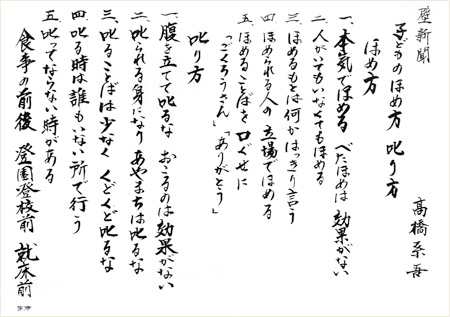 壁新聞
子どものほめ方 叱り方
高橋系吾
ほめ方
一、本気でほめる べたほめは効果がない
二、人がいてもいなくてもほめる
三、ほめるもとは何かはっきり言う
四、ほめられる人の立場でほめる
五、ほめることばを口ぐせに
「ごくろうさん」「ありがとう」
叱り方
一、腹を立てて叱るな おこるのは効果がない
二、叱られる身になり あやまちは叱るな
三、叱ることばは少なく くどくど叱るな
四、叱る時は誰もいない所で行う
五、叱ってならない時がある
食事の前後 登園登校前 就床前